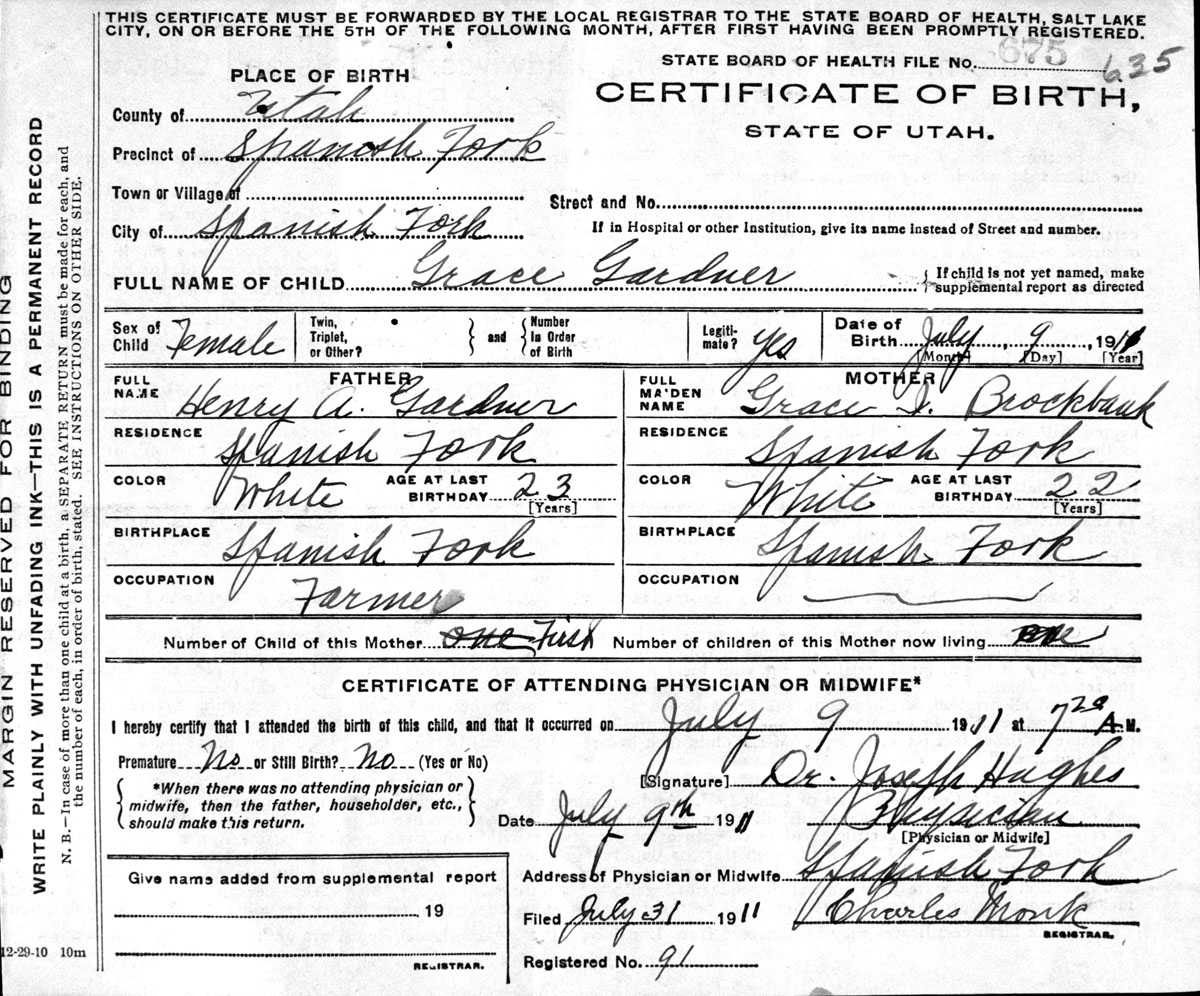 THIS CERTIFICATE MUST BE FORWARDED BY THE LOCAL REGISTRAR TO THE STATE BOARD OF HEALTH, SALT LAKE
CITY, ON OR BEFORE THE 5TH OF THE FOLLOWING MONTH, AFTER FIRST HAVING BEEN PROMPTLY REGISTERED.
STATE BOARD OF HEALTH FILE No. 675 635
PLACE OF BIRTH
CERTIFICATE OF BIRTH,
STATE OF UTAH.
County of Utah
Precinct of Spanish Fork
Town or Village of
Street and No.
City of Spanish Fork
If in Hospital or other Institution, give its name instead of Street and number.
FULL NAME OF CHILD Grace Gardner
If child is not yet named, make
supplemental report as directed
Sex of Child Female
Twin, Triplet, or Other? and Number in Order of Birth
Legiti-mate? Yes
Date of Birth July 9, 1911
[Month] [Day] [Year]
FATHER
FULL NAME Henry A. Gardner
RESIDENCE Spanish Fork
COLOR White AGE AT LAST BIRTHDAY 23
[Years]
BIRTHPLACE Spanish Fork
OCCUPATION Farmer
MOTHER
FULL MAIDEN NAME Grace I. Brockbank
RESIDENCE Spanish Fork
COLOR White AGE AT LAST BIRTHDAY 22
[Years]
BIRTHPLACE Spanish Fork
OCCUPATION
Number of Child of this Mother one First Number of children of this Mother now living one
CERTIFICATE OF ATTENDING PHYSICIAN OR MIDWIFE*
I hereby certify that I attended the birth of this child, and that it occurred on July 9 1911 at 7 A M.
Premature No or Still Birth? No (Yes or No)
[Signature] Dr. Joseph Hughes
*When there was no attending physician or
midwife, then the father, householder, etc.,
should make this return.
Date July 9th 1911 Physician
[Physician or Midwife]
Address of Physician or Midwife Spanish Fork
Give name added from supplemental report
19
REGISTRAR.
Filed July 31 1911 Charles Monk
REGISTRAR.
Registered No. 91
12-29-10 10m
MARGIN RESERVED FOR BINDING
WRITE PLAINLY WITH UNFADING INK—THIS IS A PERMANENT RECORD
N. B.—In case of more than one child at a birth, a SEPARATE RETURN must be made for each, and
the number of each, in order of birth, stated. SEE INSTRUCTIONS ON OTHER SIDE.